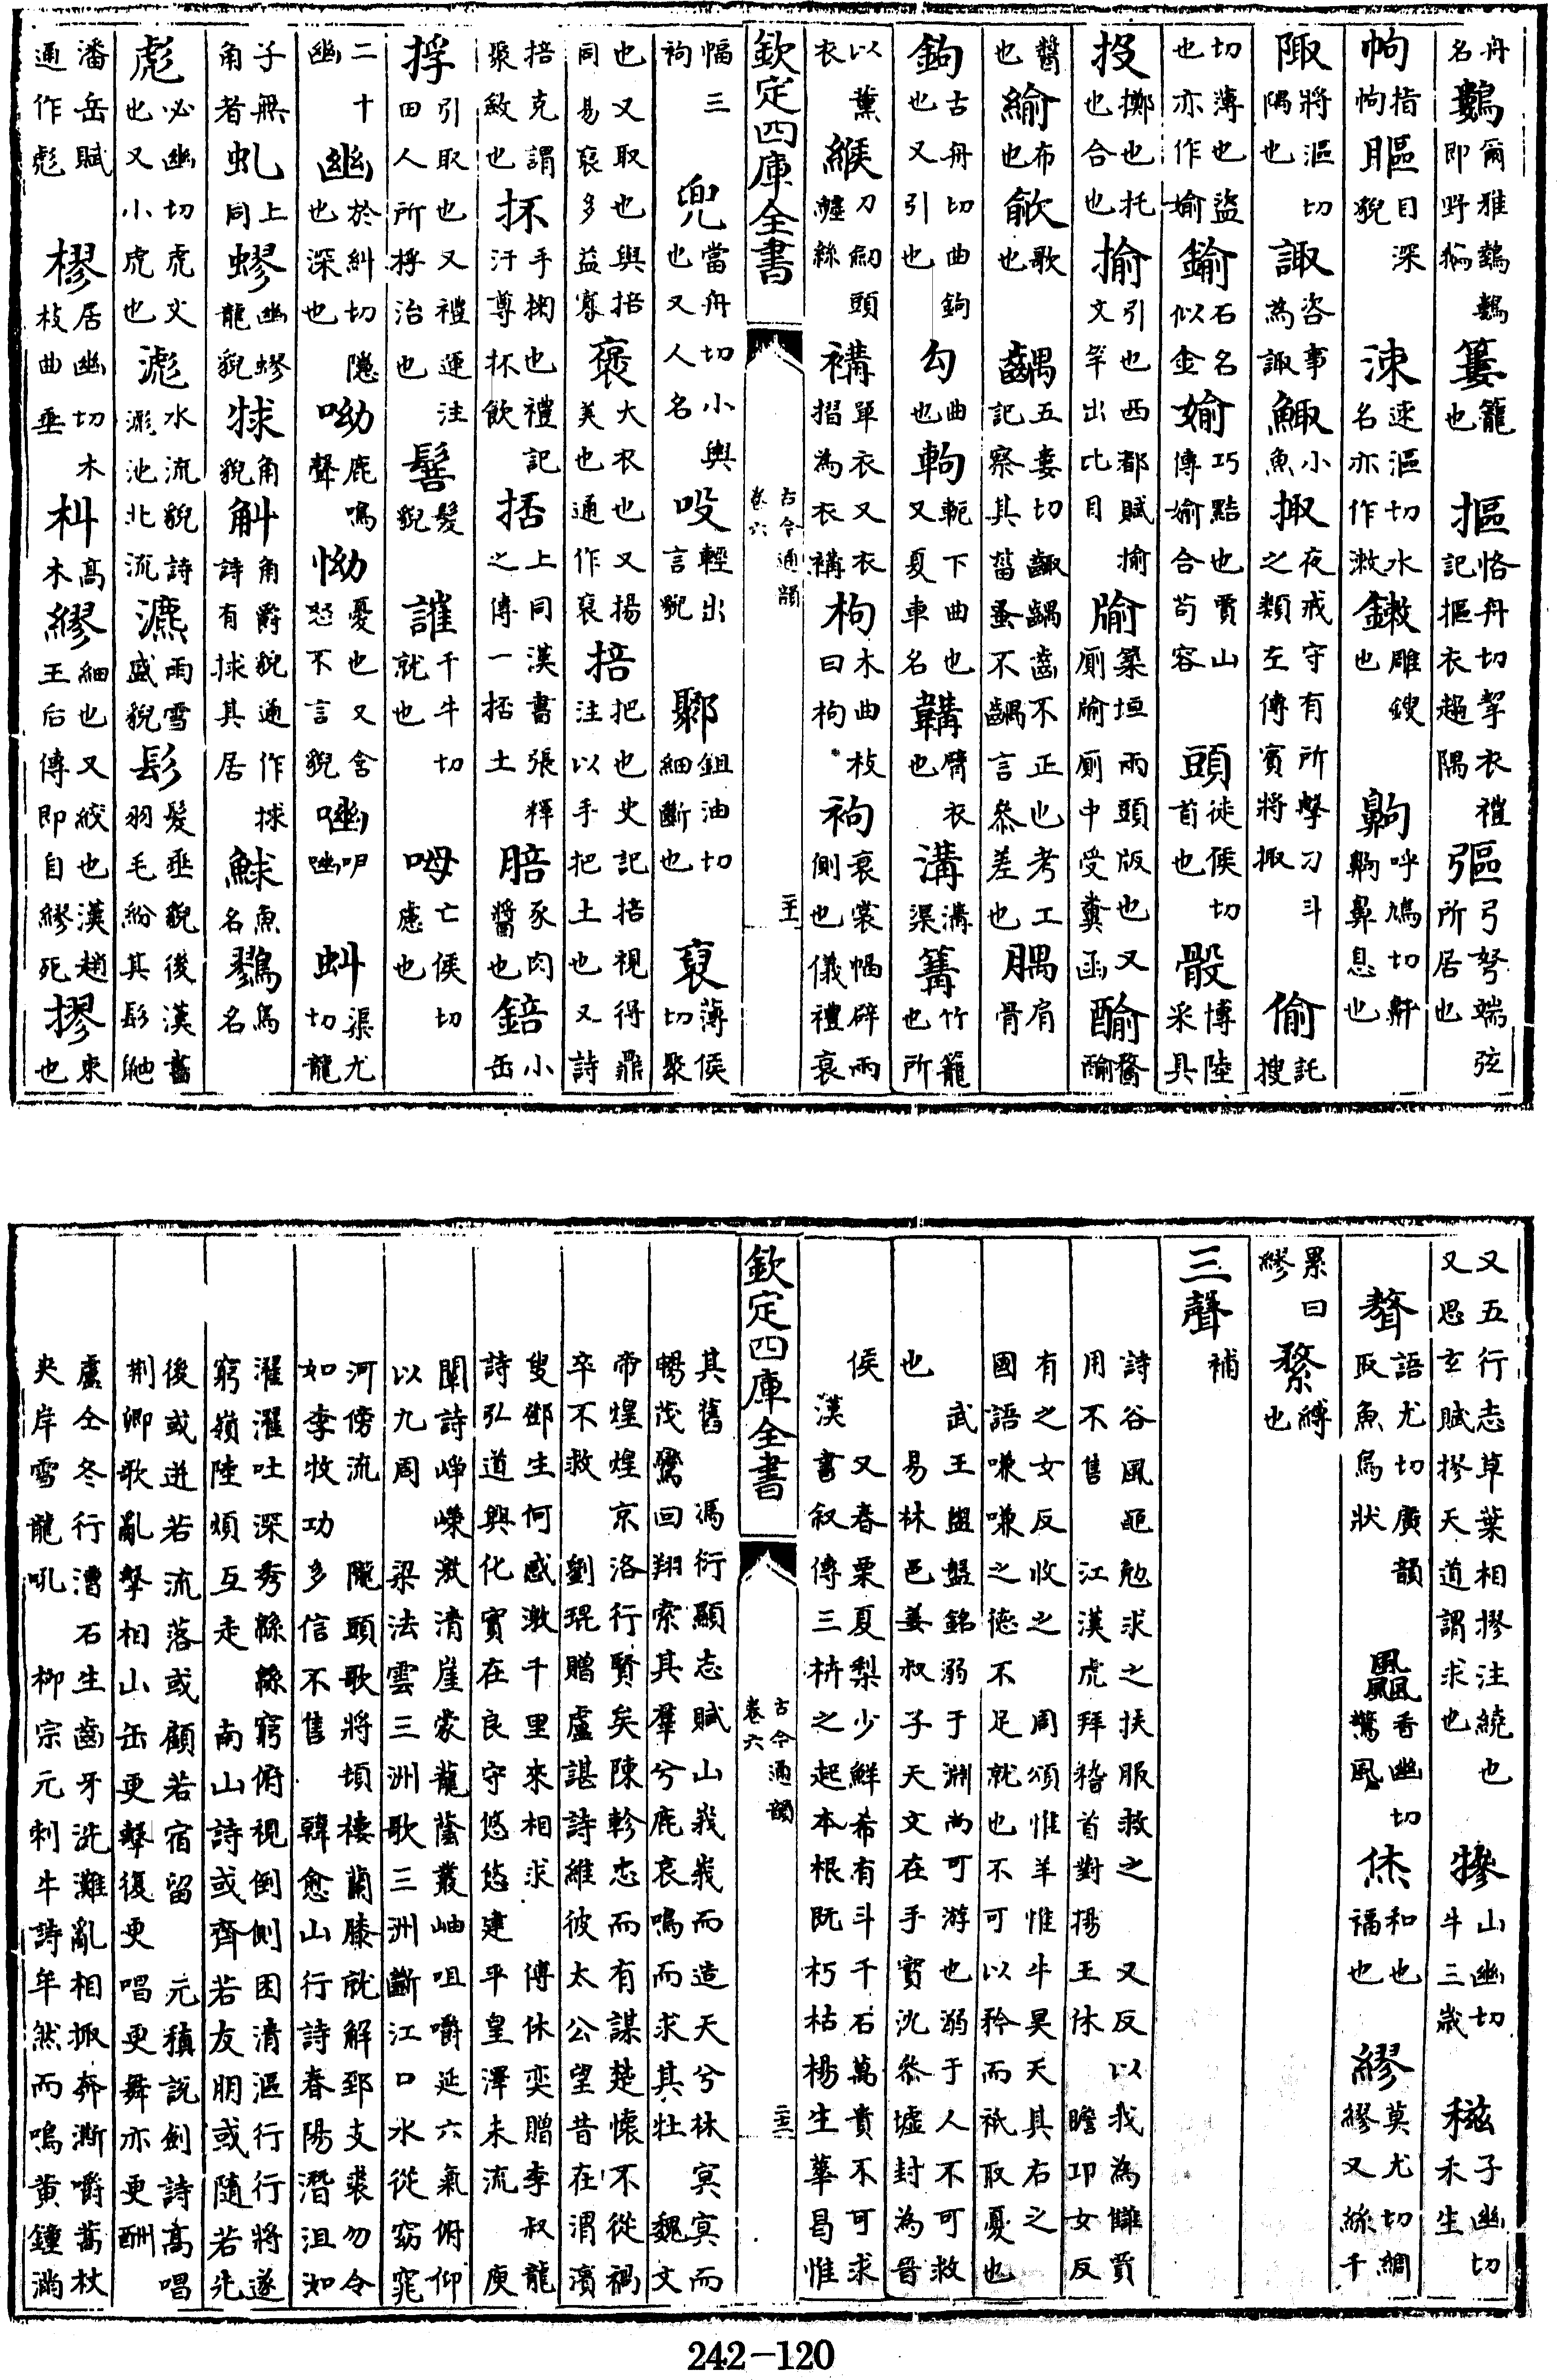 舟名鷜爾雅鷜鷜即野鵝簍籠也摳恪舟切挈衣禮記摳衣趨隅彄弓弩端弦所居也
㡂指㡂䁱目深貌涑速漚切水名亦作漱鏉雕鎪也齁呼鳩切齁鼾鼻息也
陬將漚切隅也諏咨事為諏鯫小魚掫夜戒守有所擊之類左傳賓將掫刁斗偷託搜
切薄也盜也亦作媮鍮石名似金媮巧黠也賈山傳媮合苟容頭徒侯切首也骰博陸采具
投擲也托也合也揄引也西都賦揄文竿出比目牏築垣兩頭版也又廁牏廁中受糞函酳
醬也緰布也歈歌也齵五婁切齱齵齒不正也考工記察其菑蚤不齵言參差也腢肩骨
鉤古舟切曲鉤也又引也勾曲也軥軶下曲也又夏車名韝臂衣也溝溝渠篝竹籠也所
以熏衣緱刀劒頭纏絲褠單衣又衣褶為衣褠枸木曲枝曰枸袧衰裳幅辟兩側也儀禮衰
欽定四庫全書 古今通韻 卷六
幅三袧兜當舟切小與也又人名吺輕出言貌鄹鉏油切細斷也裒薄侯切聚
也又取也與掊同易裒多益寡襃大衣也又美也通作裒掊把也史記掊視得鼎注以手把土也又詩
掊克謂聚斂也抔手掬也禮記汙尊抔飲㧵上同漢書張釋之傳一㧵土䏽豕肉醬也錇小缶
捊引取也又禮運注田人所捊治也髻髮貌誰千牛切就也呣亡侯切慮也
二十幽於糾切隱也深也呦鹿鳴聲怮憂也又含怒不言貌嚘呷嚘虯渠尤切龍
子無角者虬上同蟉幽蟉龍貌觓角貌觩角爵貌通作捄詩有捄其居鯄魚名鷚鳥名
彪必幽切虎文也又小虎也滮水流貌詩滮池北流瀌雨雪盛貌髟髮垂貌後漢書羽毛紛其髟鼬
潘岳賦通作彪樛居幽切木枝曲垂朻高木繆細也又絞也漢趙王后傳即自繆死摎束也
又五行志草葉相摎注繞也又思玄賦摎天道謂求也犙山幽切牛三歲䅆子幽切禾生
聱語尤切廣韻取魚鳥狀飍香幽切驚風烋和也福也繆莫尤切綢繆又絲千
累曰繆䋺縛也
三聲 補
詩谷風黽勉求之扶服救之又反以我為讎賈用不售江漢虎拜稽首對揚王休瞻卬女反
有之女反收之周頌惟羊惟牛昊天其右之國語嗛嗛之德不足就也不可以矜而祇取憂也
武王盥盤銘溺于淵尚可游也溺于人不可救也易林邑姜叔子天文在手實沈參墟封為晉
侯又春栗夏梨少鮮希有斗千石萬貴不可求漢書叙傳三枿之起本根既朽枯楊生華曷惟
欽定四庫全書 古今通韻 卷六
其舊馮衍顯志賦山峩峩而造天兮林冥冥而暢茂鸞回翔索其羣兮鹿哀鳴而求其牡魏文
帝煌煌京洛行賢矣陳軫忠而有謀楚懷不從禍卒不救劉琨贈盧諶詩維彼太公望昔在渭濱
叟鄧生何感激千里來相求傅休奕贈李叔龍詩弘道興化實在良守悠悠建平皇澤未流庾
闡詩崢嶸激清崖蒙籠蔭叢岫咀嚼延六氣俯仰以九周梁法雲三洲歌三洲斷江口水從窈窕
河傍流隴頭歌將頓棲蘭膝就解郅支裘勿令如李牧功多信不售韓愈山行詩春陽潛沮洳
濯濯吐深秀緜緜窮俯視倒側困清漚行行將遂窮嶺陸煩互走南山詩或齊若友朋或隨若先
後或逬若流落或顧若宿留元稹說劍詩高唱荆卿歌亂擊相山缶更擊復更唱更舞亦更酬
盧仝冬行漕石生齒牙洗灘亂相掫奔澌嚼篙杖夾岸雪龍吼柳宗元刺牛詩牟然而鳴黃鍾滿
242-120